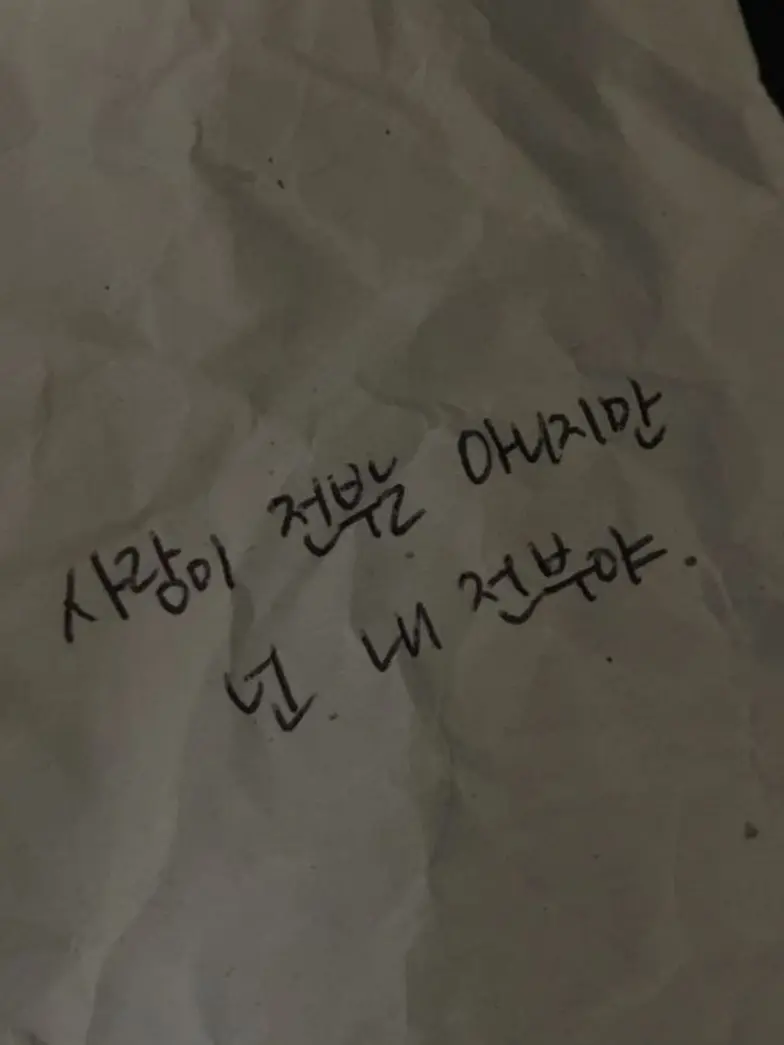 사랑이 전불 아니지만
넌 내 전부야.